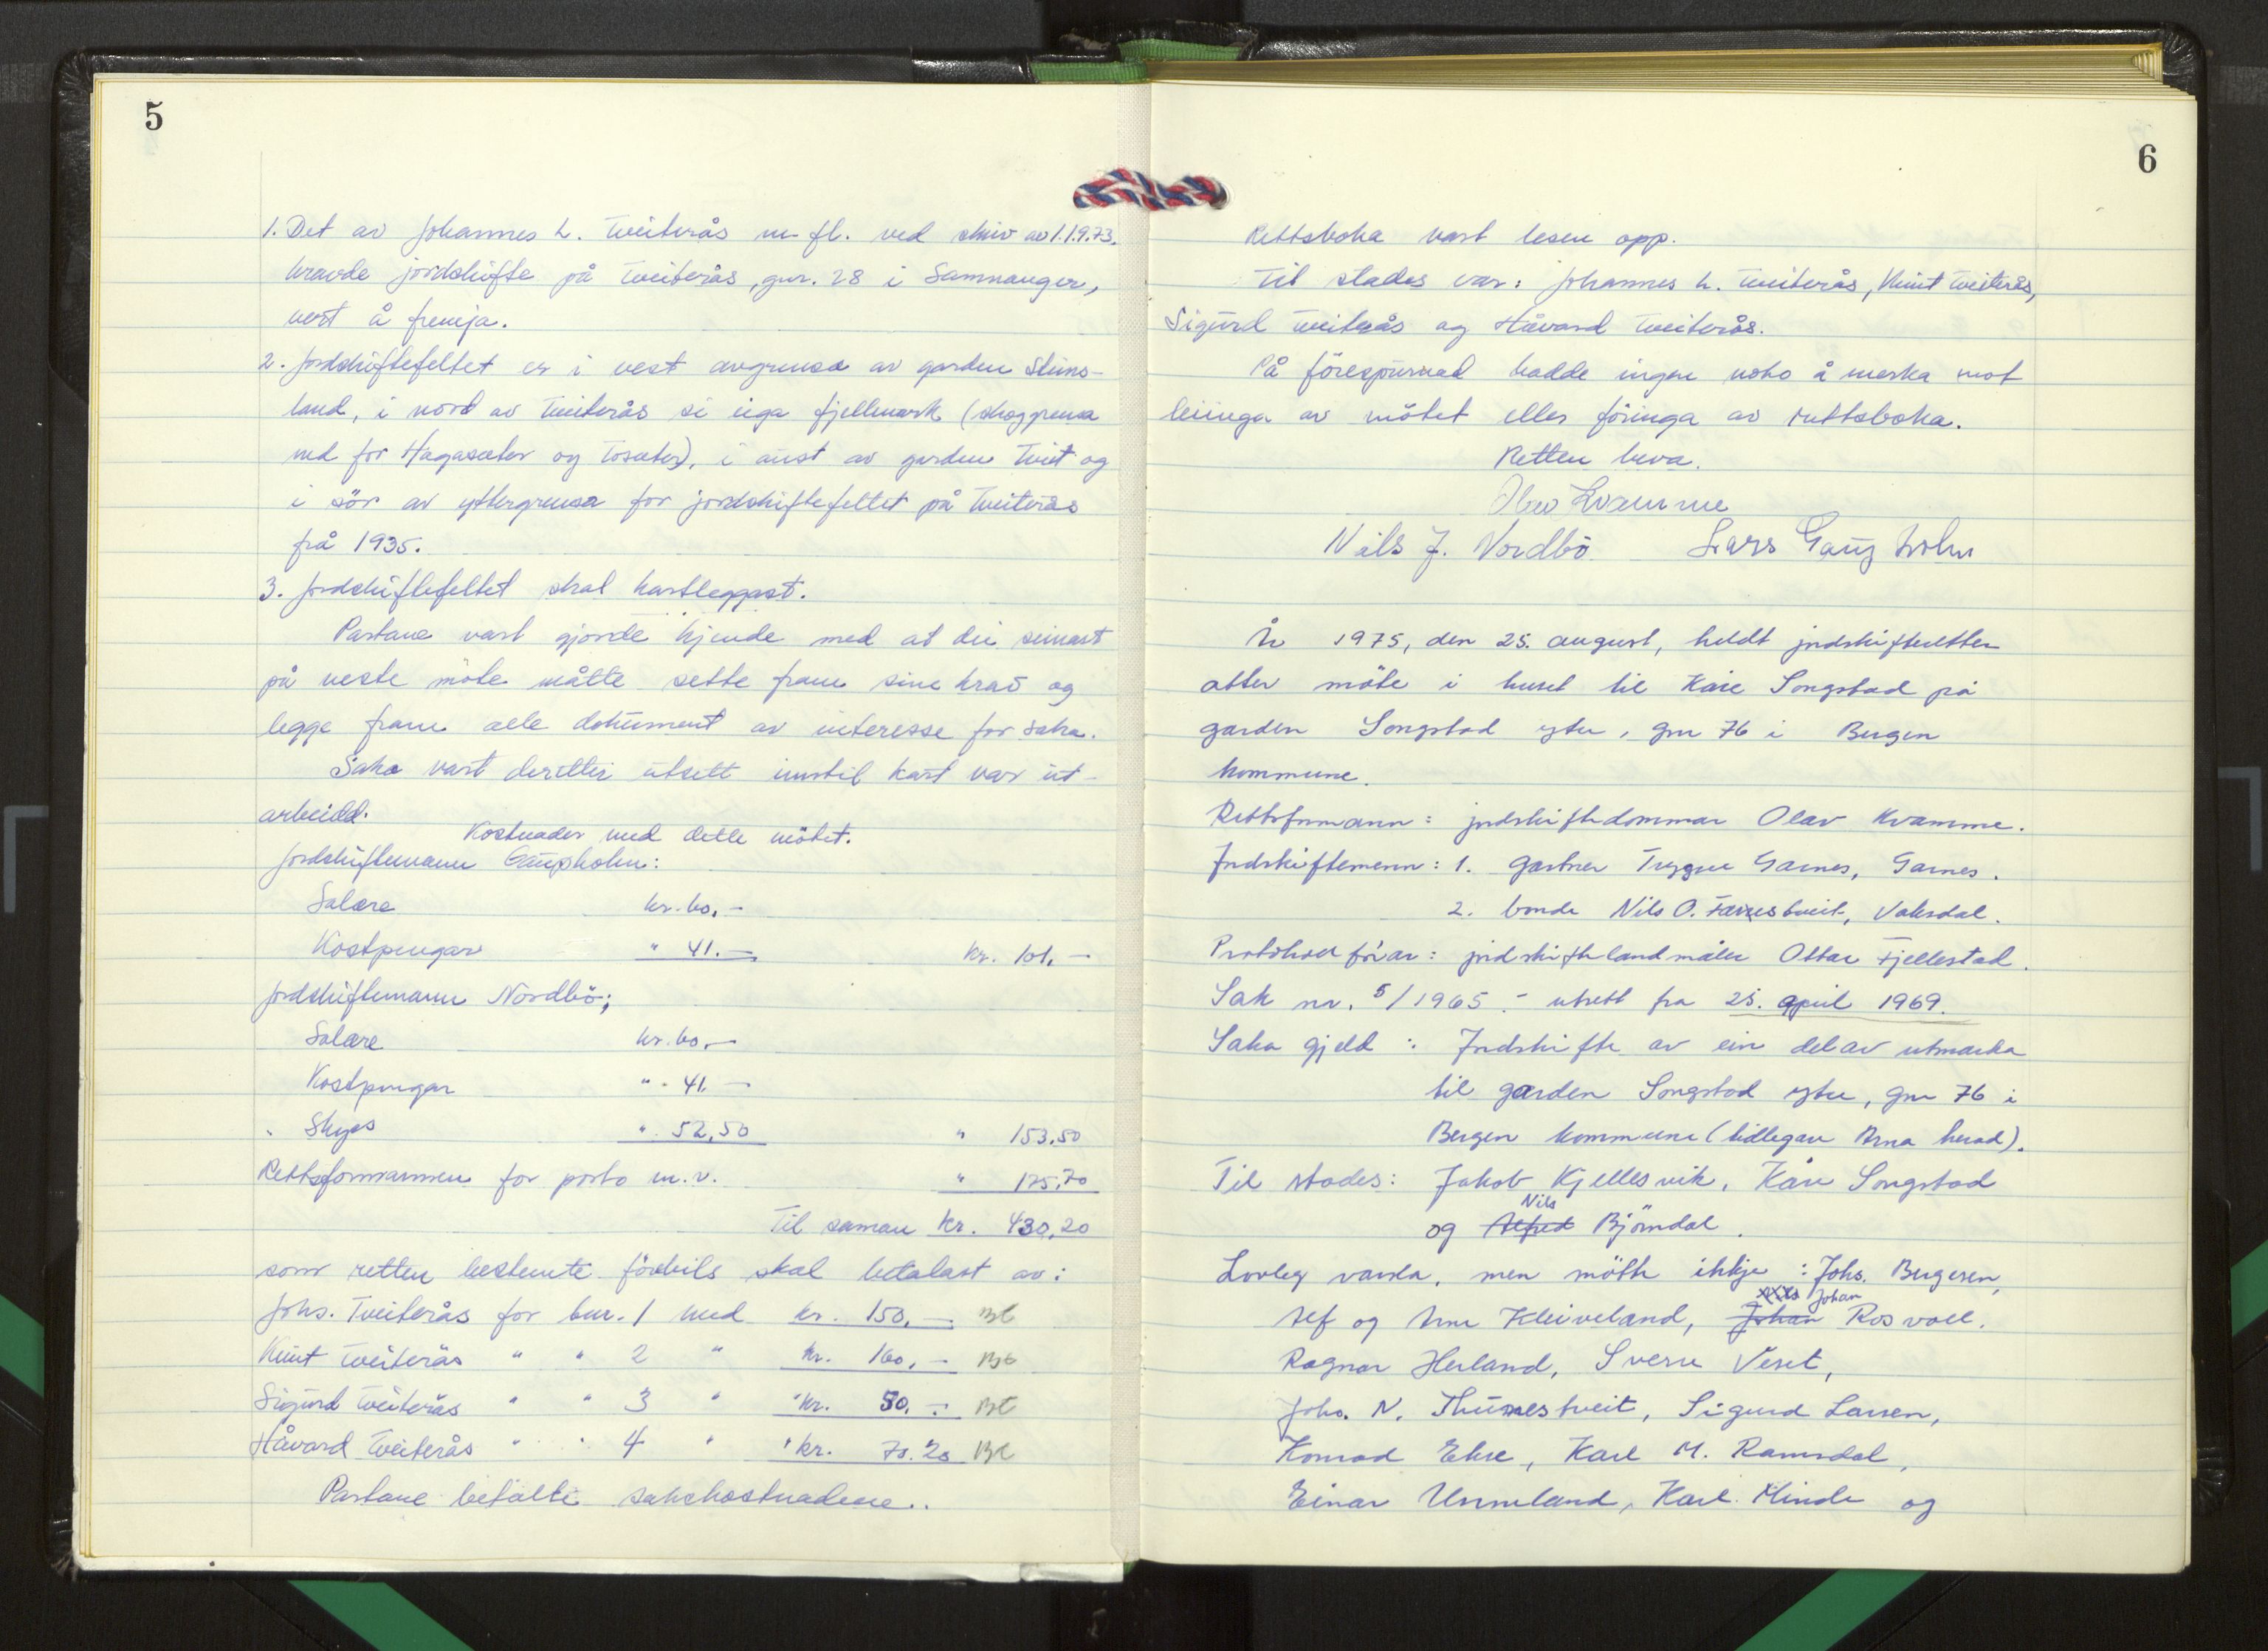 5
1. Det av Johannes L. Tveiterås m. fl. ved skriv av 1.1.9.73.
kravde jordskifte på Tveiterås, gnr. 28 i Samnanger,
vert å fremja.
2. Jordskiftefeltet er i vest avgrensa av garden Steins-
land, i nord av Tveiterås si eiga fjellmark (skoggrensa
ned for Hagasæter og Tosæter), i aust av garden Tveit og
i sör av yttergrensa for jordskiftefeltet på Tveiterås
frå 1935.
3. Jordskiftefeltet skal kartleggast.
Partane vart gjorde kjende med at dei seinast
på neste möte måtte sette fram sine krav og
legge fram alle dokument av interesse for saka.
Saka vart deretter utsett inntil kart var ut-
arbeidd.
Kostnader med dette mötet.
Jordskiftemann Gaupholm:
Salære kr. 60,-
Kostpengar " 41.- kr. 101,-
Jordskiftemann Nordbö;
Salære kr. 60,-
Kostpengar " 41.-
" Skyss " 52,50 " 153,50
Rettsformannen for porto m.v. " 175,70
Til saman kr. 430,20
som retten bestemte förebils skal betalast av:
Johs. Tveiterås for bnr. 1 med kr. 150,- Bt
Knut Tveiterås " " 2 " kr. 160,- Bt
Sigurd Tveiterås " " 3 " "kr. 50,- Bt
Håvard Tveiterås " " 4 " "kr. 70.20 Bt
Partane betalte sakskostnadene..
6
Rettsboka vart lesen opp.
Til stades var: Johannes L. Tveiterås, Knut Tveiterås,
Sigurd Tveiterås og Håvard Tveiterås.
På förespurnad hadde ingen noko å merka mot
leiinga av mötet eller föringa av rettsboka.
Retten heva.
Olav Kvamme
Nils J. Nordbö Lars Gaupholm
År 1975, den 25. august, heldt jordskifteretten
atter möte i huset til Kåre Songstad på
garden Songstad ytre, gnr 76 i Bergen
kommune.
Rettsformann: jordskiftedommar Olav Kvamme.
Jordskiftemenn: 1. gartner Trygve Garnes, Garnes.
2. bonde Nils O. Farestveit, Vaksdal.
Protokollförar: jordskiftelandmåler Ottar Fjellestad.
Sak nr. 5/1965 - utsett fra 25. april 1969.
Saka gjeld: Jordskifte av ein del av utmarka
til garden Songstad ytre, gnr 76 i
Bergen kommune (tidlegare Arna herad).
Til stades: Jakob Kjellesvik, Kåre Songstad
Nils
og Alfred Björndal.
Lovleg varsla, men mötte ikkje: Johs. Bergesen,
Nils Johan
Alf og Arne Kleiveland, Johan Rosvoll.
Ragnar Herland, Sverre Veset,
Johs. N. Thunestveit, Sigurd Larsen,
Konrad Ekre, Karl M. Ramsdal,
Einar Unneland, Karl Minde og